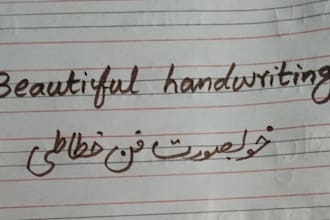 Beautiful handwriting
خوبصورت فن خطاطی